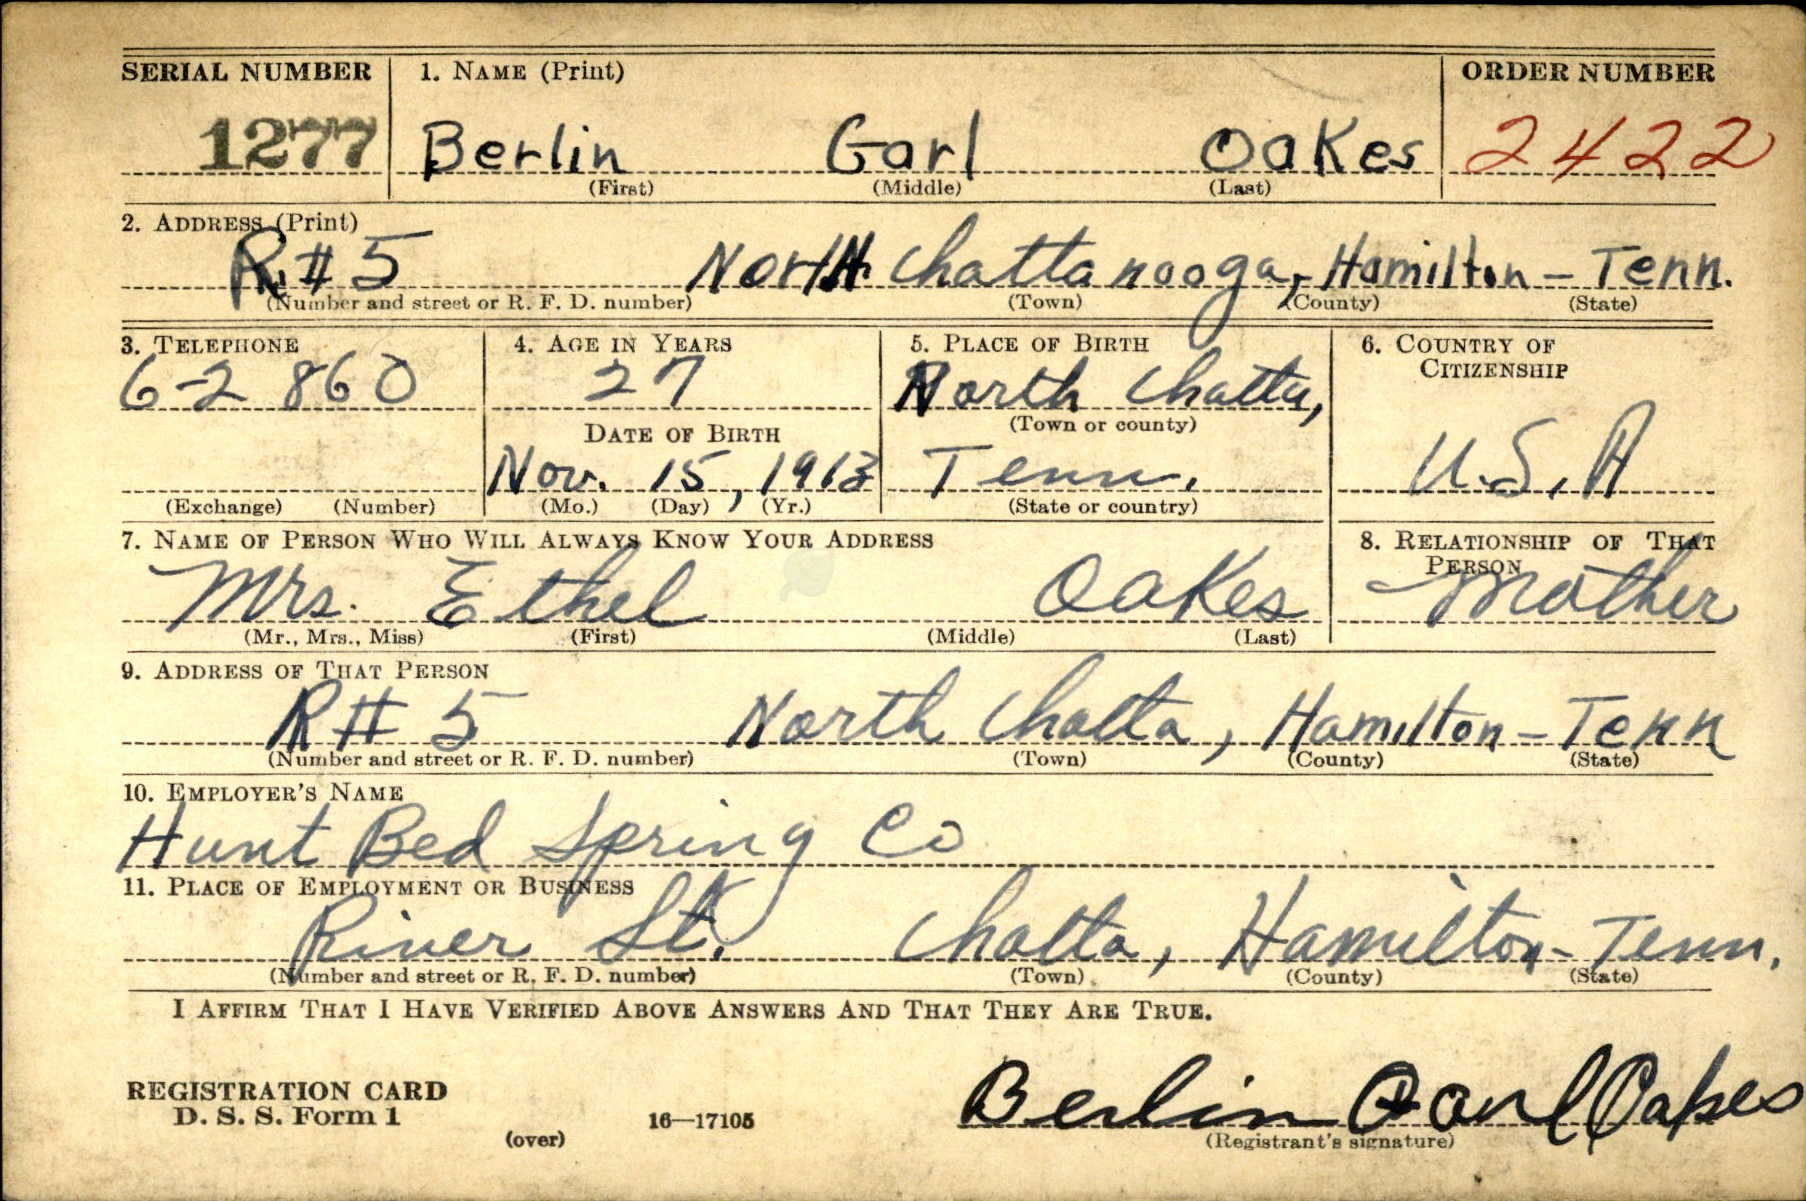 SERIAL NUMBER 1. NAME (Print) ORDER NUMBER
1277 Berlin Garl Oakes 2422
(First) (Middle) (Last)
2. ADDRESS (Print)
R#5 North Chattanooga, Hamilton - Tenn.
(Number and street or R. F. D. number) (Town) (County) (State)
3. TELEPHONE 4. AGE IN YEARS 5. PLACE OF BIRTH 6. COUNTRY OF CITIZENSHIP
6-2860 27 North Chatta,
DATE OF BIRTH (Town or county)
Nov. 15, 1913 Tenn. U.S.A
(Exchange) (Number) (Mo.) (Day) (Yr.) (State or country)
7. NAME OF PERSON WHO WILL ALWAYS KNOW YOUR ADDRESS 8. RELATIONSHIP OF THAT PERSON
Mrs. Ethel Oakes Mother
(Mr., Mrs., Miss) (First) (Middle) (Last)
9. ADDRESS OF THAT PERSON
R#5 North Chatta, Hamilton - Tenn
(Number and street or R. F. D. number) (Town) (County) (State)
10. EMPLOYER'S NAME
Hunt Bed Spring Co
11. PLACE OF EMPLOYMENT OR BUSINESS
River St. Chatta, Hamilton - Tenn.
(Number and street or R. F. D. number) (Town) (County) (State)
I AFFIRM THAT I HAVE VERIFIED ABOVE ANSWERS AND THAT THEY ARE TRUE.
REGISTRATION CARD
D. S. S. Form 1 16—17105 Berlin Garl Oakes
(over) (Registrant's signature)